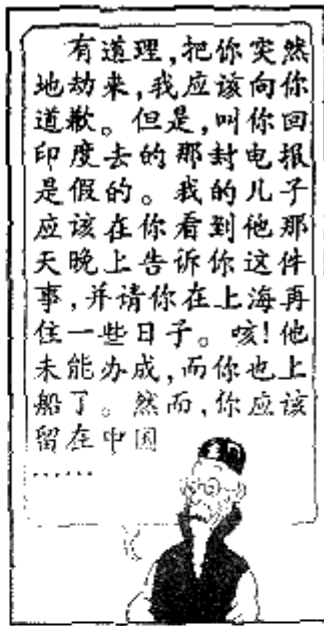 有道理,把你突然
地劫来,我应该向你
道歉。但是,叫你回
印度去的那封电报
是假的。我的儿子
应该在你看到他那
天晚上告诉你这件
事,并请你在上海再
住一些日子。咳!他
未能办成,而你也上
船了。然而,你应该
留在中国
……